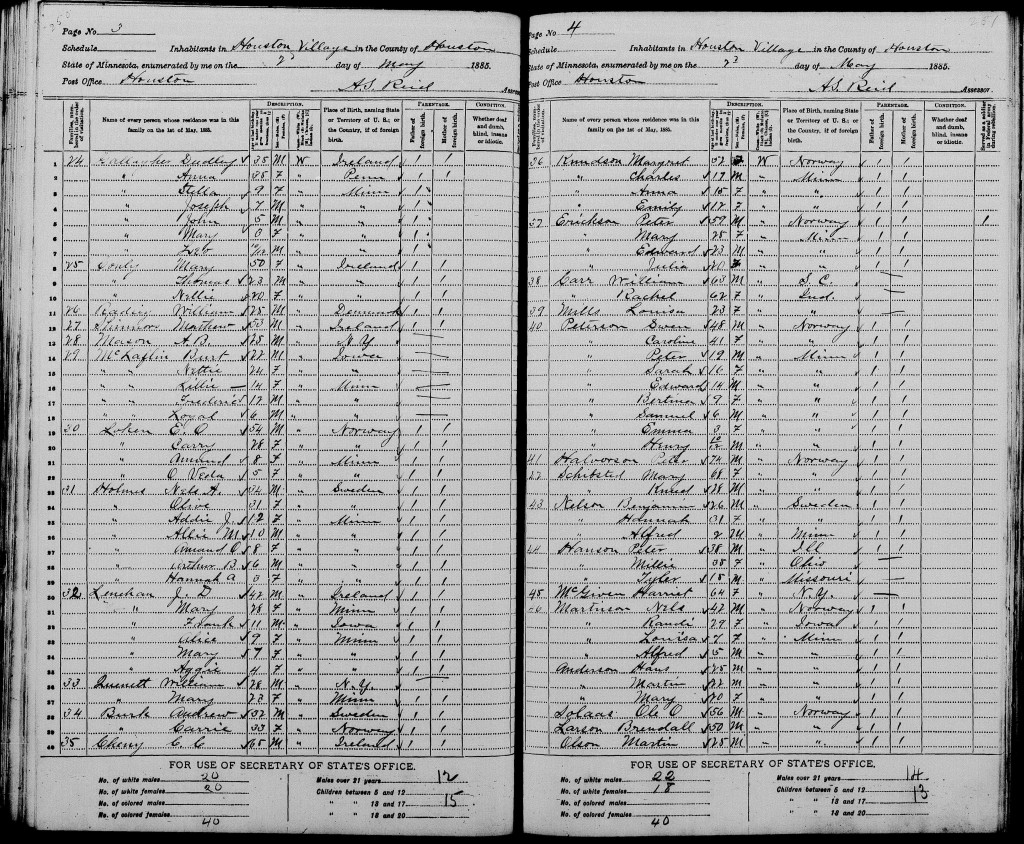 Page No. 3
Schedule Inhabitants in Houston Village in the County of Houston
State of Minnesota, enumerated by me on the 2d day of May 1885.
Post Office Houston A.S. Reid Assessor.
Name of every person whose residence was in this family on the 1st of May, 1885.
DESCRIPTION.
Place of Birth, naming State or Territory of U. S.; or the Country, if of foreign birth.
PARENTAGE.
Father of foreign birth.
Mother of foreign birth.
CONDITION.
Whether deaf and dumb, blind, insane or idiotic.
1 24 Gallagher Dudley 38 M W Ireland 1 1
2 " Anna 38 F " Penn 1 1
3 " Stella 9 F " Minn 1 "
4 " Joseph 7 M " " 1 "
5 " John 5 M " " 1 "
6 " Mary 3 F " " 1 "
7 " M " " 1 "
8 25 Mary 50 F " Ireland 1 1
9 " Thomas 23 M " " 1 1
10 " Nellie 20 F " " 1 1
11 26 William 25 M " Denmark 1 1
12 27 Mathew 53 M " Ireland 1 1
13 28 Mason A. B. 25 M " N.Y.
14 29 McLaflin Burt 22 M " Iowa
15 " " Nettie 24 F " "
16 " " Lillie 14 F " Minn
17 " " Frederic 12 M " "
18 " " Loyal 6 M " "
19 30 Loken E. O 54 M " Norway 1 1
20 " Carry 28 F " " 1 1
21 " 8 F " Minn 1 1
22 " O Veda 5 F " " 1 1
23 31 Holmes Nels H. 34 M " Sweden 1 1
24 " Olive 31 F " " 1 1
25 " Addie J. 12 F " Minn 1 1
26 " Allie M 10 M " " 1 1
27 " Amand O 8 F " " 1 1
28 " Arthur B. 6 M " " 1 1
29 " Hannah A 3 F " " 1 1
30 32 Lenihan J. D 42 M " Ireland 1 1
31 " Mary 28 F " Minn 1 1
32 " Frank 11 M " Iowa 1 1
33 " Alice 9 F " Minn 1 1
34 " Mary 7 F " " 1 1
35 " Aggie 4 F " " 1 1
36 33 William 28 M " N.Y.
37 " Mary 22 F " Minn 1 1
38 34 Burk Andrew 32 M " Sweden 1 1
39 " Carrie 33 F " Norway 1 1
40 35 Cheny C. C 65 M " Ireland 1 1
FOR USE OF SECRETARY OF STATE'S OFFICE.
No. of white males 20 Males over 21 years 12
No. of white females 20 Children between 5 and 12 15
No. of colored males " " 15 and 17
No. of colored females " " 18 and 20
40
Page No. 4
Schedule Inhabitants in Houston Village in the County of Houston
State of Minnesota, enumerated by me on the 2d day of May 1885.
Post Office Houston A.S. Reid Assessor.
Name of every person whose residence was in this family on the 1st of May, 1885.
DESCRIPTION.
Place of Birth, naming State or Territory of U. S.; or the Country, if of foreign birth.
PARENTAGE.
Father of foreign birth.
Mother of foreign birth.
CONDITION.
Whether deaf and dumb, blind, insane or idiotic.
36 Knudson Margret 52 F W Norway 1 1
" Charles 17 M " Minn 1 1
" Anna 15 F " " 1 1
" Emily 12 F " " 1 1
37 Erickson Peter 59 M " Norway 1 1 1
" Mary 28 F " Minn 1 1
" Edward 23 M " " 1 1
" Julia 20 F " " 1 1
38 Carr William 63 M " S. C.
" Rachel 62 F " Ind.
39 Mills Louisa 23 F " "
40 Peterson Swen 48 M " Norway 1 1
" Caroline 41 F " " 1 1
" Peter 19 M " Minn 1 1
" Sarah 16 F " " 1 1
" Edward 14 M " " 1 1
" Bertina 9 F " " 1 1
" Samuel 6 M " " 1 1
" Emma 3 F " " 1 1
" Henry 10/12 M " " 1 1
41 Halvorson Peter 74 M " Norway 1 1
42 Schibsted Mary 68 F " " 1 1
" Knud 28 M " " 1 1
43 Nelson Benjamin 26 M " Sweden 1 1
" Hannah 31 F " " 1 1
" Alfred 2 M " Minn 1 1
44 Hanson Peter 38 M " Ill 1 1
" Millie 38 F " Ohio
" Tyler 18 M " Missouri
45 McGiven Harriet 64 F " N.Y.
46 Martinson Nels 42 M " Norway 1 1
" Randi 29 F " Iowa 1 1
" Louisa 7 F " Minn 1 1
" Alfred 5 M " " 1 1
Anderson Hans 25 M " " 1 1
" Martin 22 M " " 1 1
" Mary 20 F " " 1 1
Solaas Ole O 56 M " Norway 1 1
Larson Brendall 50 M " " 1 1
Olson Martin 25 M " " 1 1
FOR USE OF SECRETARY OF STATE'S OFFICE.
No. of white males 22 Males over 21 years 14
No. of white females 18 Children between 5 and 12 13
No. of colored males " " 15 and 17
No. of colored females " " 18 and 20
40